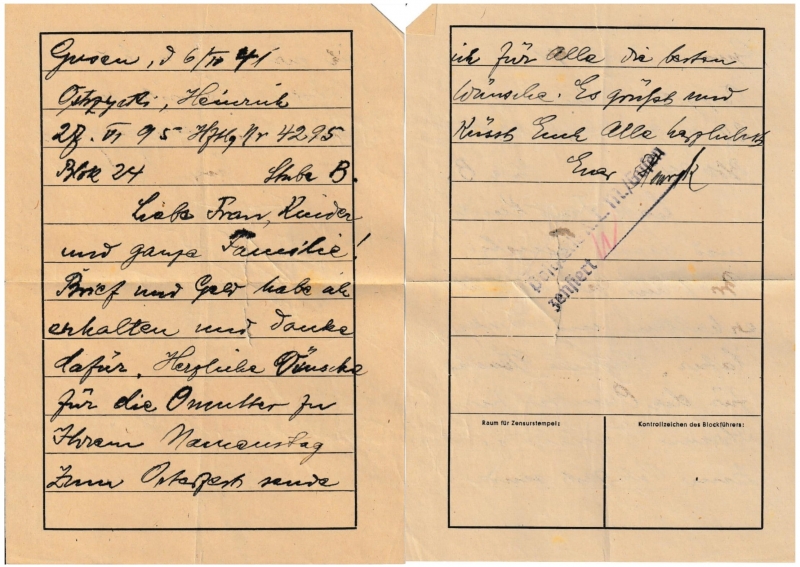 Gusen, d 6/IV 41
Ostrzycki, Heinrich
27. VI 95 Hftlg Nr 4295
Blok 24 Stube B.
Liebe Frau, Kinder
und ganze Familie!
Brief und Geld habe ich
erhalten und danke
dafür. Herzliche Wünsche
für die Omutter zu
Ihrem Namenstag
Zum Osterfest sende
ich für Alle die besten
Wünsche. Es grüßt und
Küsst Euch Alle herzlichst
Euer
K.L.M./Gusen
zensiert
Raum für Zensurstempel:
Kontrollzeichen des Blockführers: